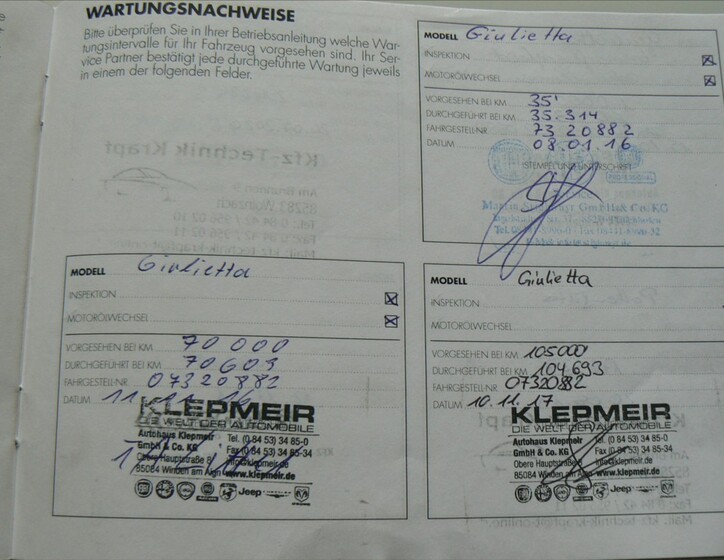 WARTUNGSNACHWEISE
Bitte überprüfen Sie in Ihrer Betriebsanleitung welche War-
tungsintervalle für Ihr Fahrzeug vorgesehen sind. Ihr Ser-
vice Partner bestätigt jede durchgeführte Wartung jeweils
in einem der folgenden Felder.
MODELL Giulietta
INSPEKTION
MOTORÖLWECHSEL
VORGESEHEN BEI KM 35'
DURCHGEFÜHRT BEI KM 35.314
FAHRGESTELL-NR. 73 20882
DATUM 08.01.16
STEMPEL UND UNTERSCHRIFT
GmbH & Co. KG
MODELL Giulietta
INSPEKTION
MOTORÖLWECHSEL
VORGESEHEN BEI KM 70 000
DURCHGEFÜHRT BEI KM 70609
FAHRGESTELL-NR. 07320882
DATUM 11 16
KLEPMEIR
DIE WELT DER AUTOMOBILE
Autohaus Klepmeir Tel. (0 84 53) 34 85-0
GmbH & Co. KG Fax (0 84 53) 34 85-34
Obere Hauptstraße 8 info@klepmeir.de
85084 Winden am Aign www.klepmeir.de
Jeep
MODELL Giulietta
INSPEKTION
MOTORÖLWECHSEL
VORGESEHEN BEI KM 105000
DURCHGEFÜHRT BEI KM 104693
FAHRGESTELL-NR. 07320882
DATUM 10.11.17
KLEPMEIR
DIE WELT DER AUTOMOBILE
Autohaus Klepmeir Tel. (0 84 53) 34 85-0
GmbH & Co. KG Fax (0 84 53) 34 85-34
Obere Hauptstraße 8 info@klepmeir.de
85084 Winden am Aign www.klepmeir.de
Jeep